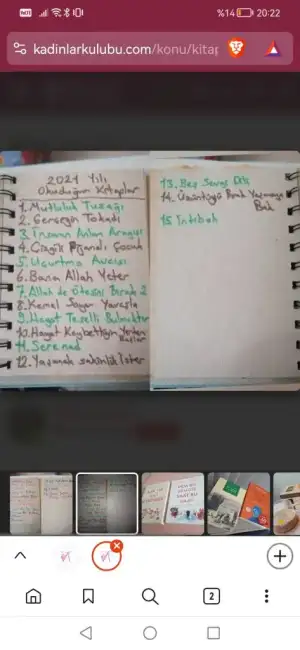 %14 20:22
kadinlarkulubu.com/konu/kitap
2021 Yılı
Okuduğum Kitaplar
1. Mutluluk Tuzağı
2. Gerçeğin Tokadı
3. İnsanın Anlam Arayışı
4.
5. Uçurtma Avcısı
6. Bana Allah Yeter
7. Allah de Ötesini Bırak 2
8. Kemal Sayar Yavaşla
9. Hayat Teselli Bulmaktır
10. Hayat Kaybettiğin Yerden
Başlar
11. Serenad
12. Yaşamak sakinlik İster
13. Beş Sevgi Dili
14. Üzüntüyü Bırak Yaşamaya
Bak
15 İntibah
2